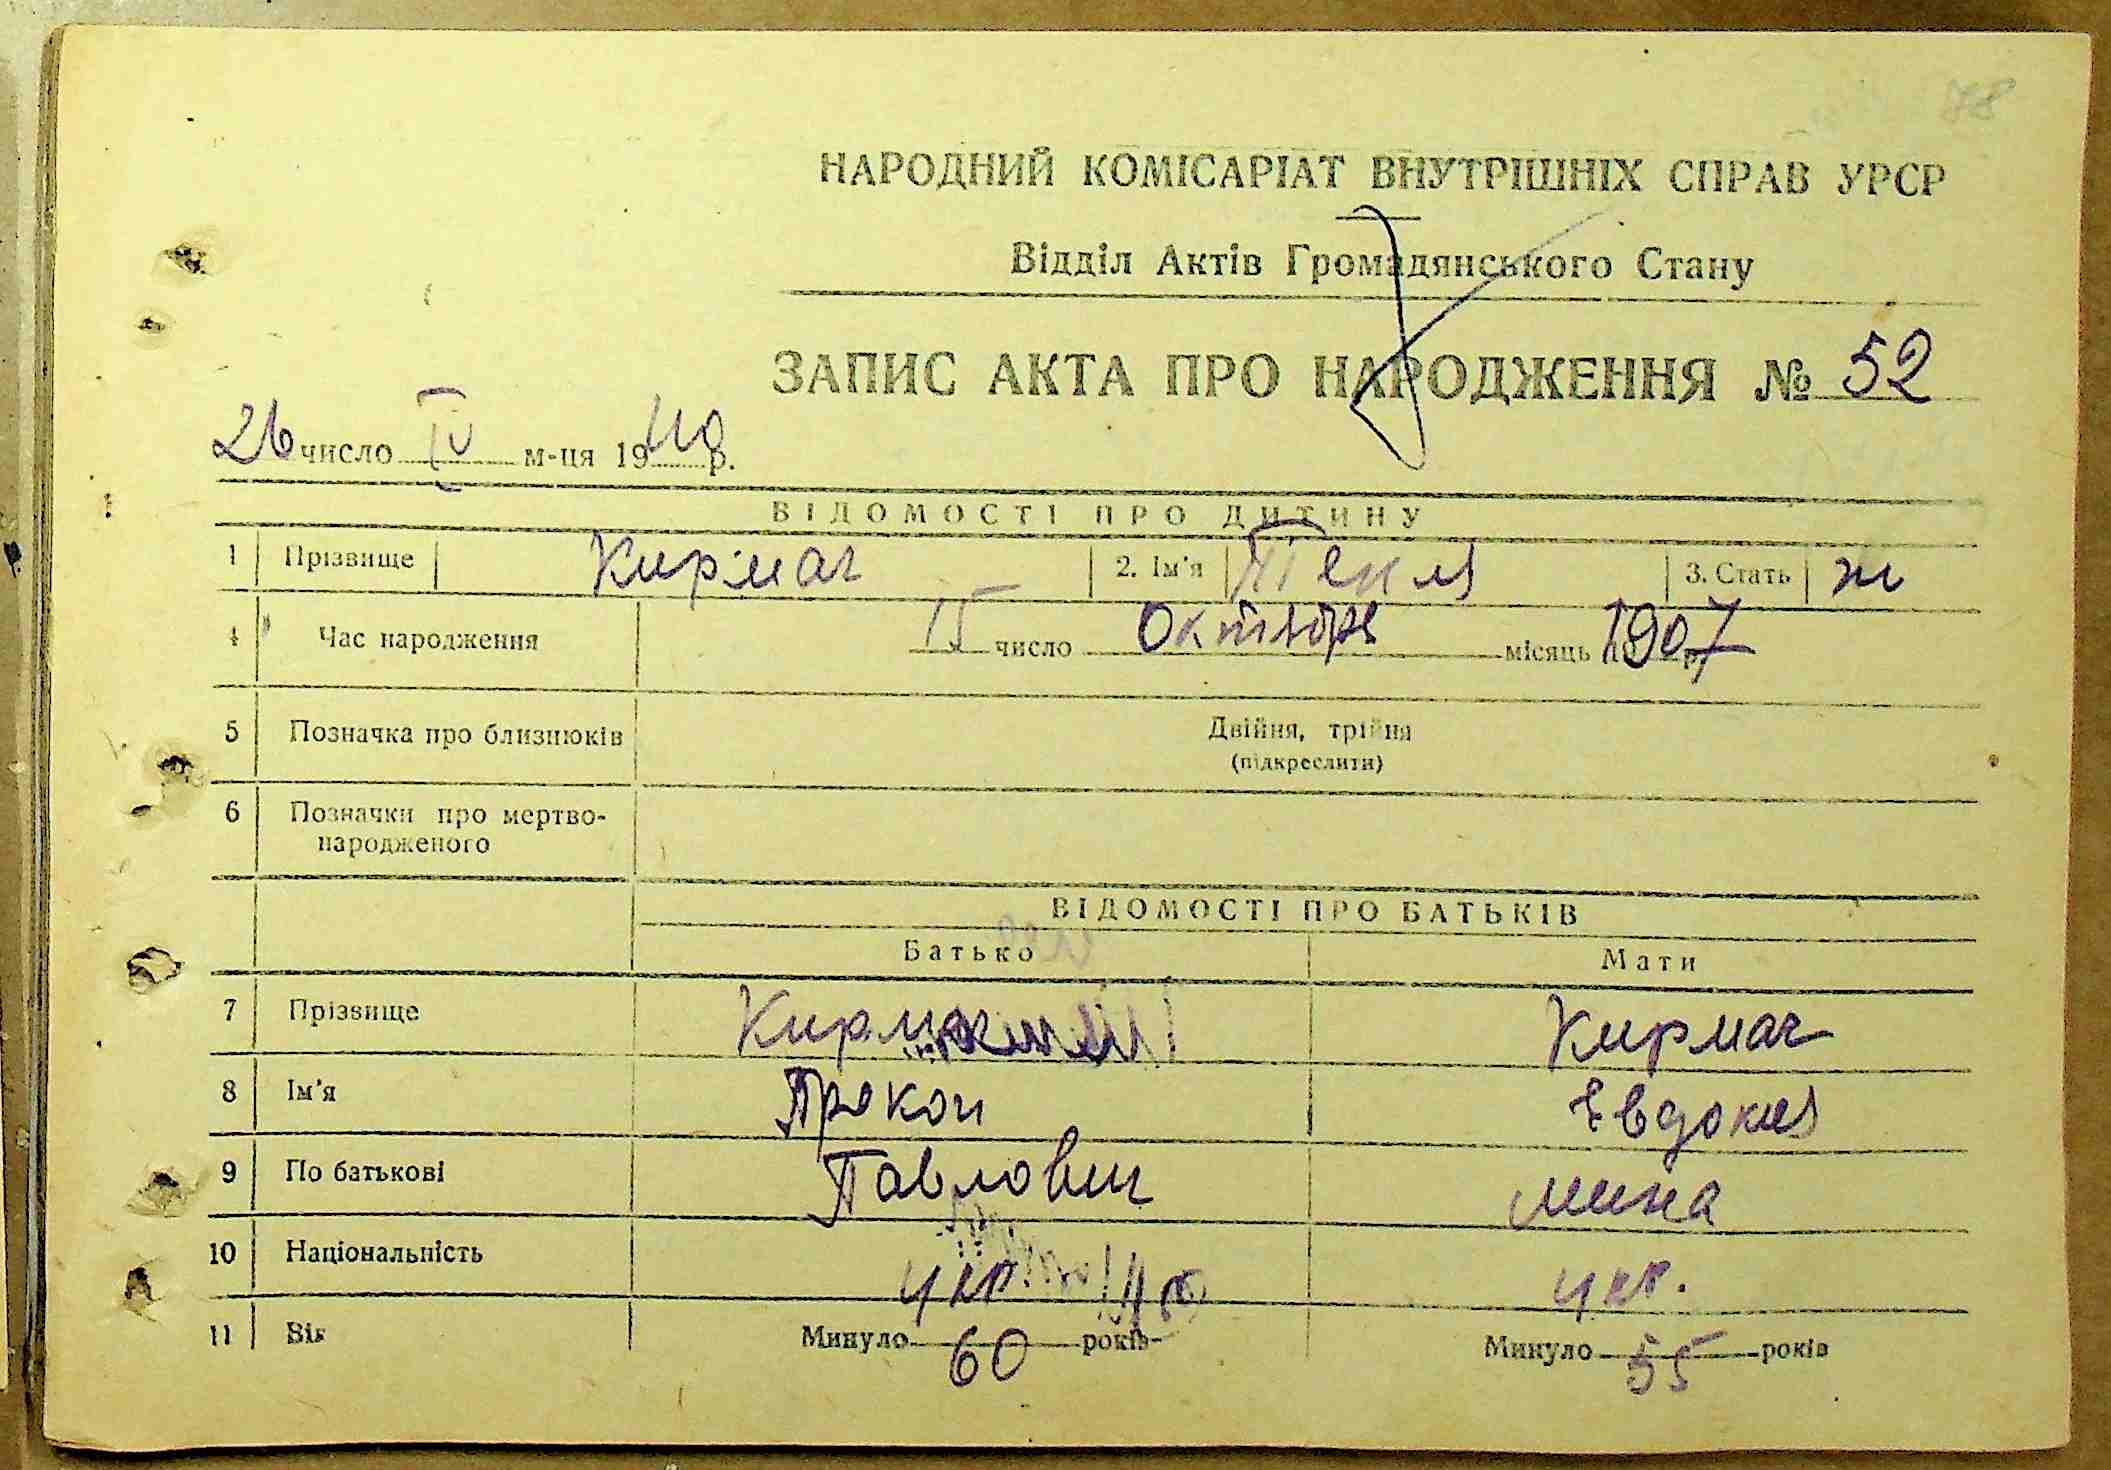 78
НАРОДНИЙ КОМІСАРІАТ ВНУТРІШНІХ СПРАВ УРСР
Відділ Актів Громадянського Стану
ЗАПИС АКТА ПРО НАРОДЖЕННЯ № 52
26 число IV м-ця 1940 р.
ВІДОМОСТІ ПРО ДИТИНУ
1 Прізвище Кирмач 2. Ім'я Текля 3. Стать ж
4 Час народження 15 число Октября місяць 1907 р.
5 Позначка про близнюків Двійня, трійня
(підкреслити)
6 Позначки про мертво-
народженого
ВІДОМОСТІ ПРО БАТЬКІВ
Батько Мати
7 Прізвище Кирмач Кирмач
8 Ім'я Прокоп Евдокия
9 По батькові Павлович Мина
10 Національність укр. укр.
11 Вік Минуло 60 років Минуло 55 років